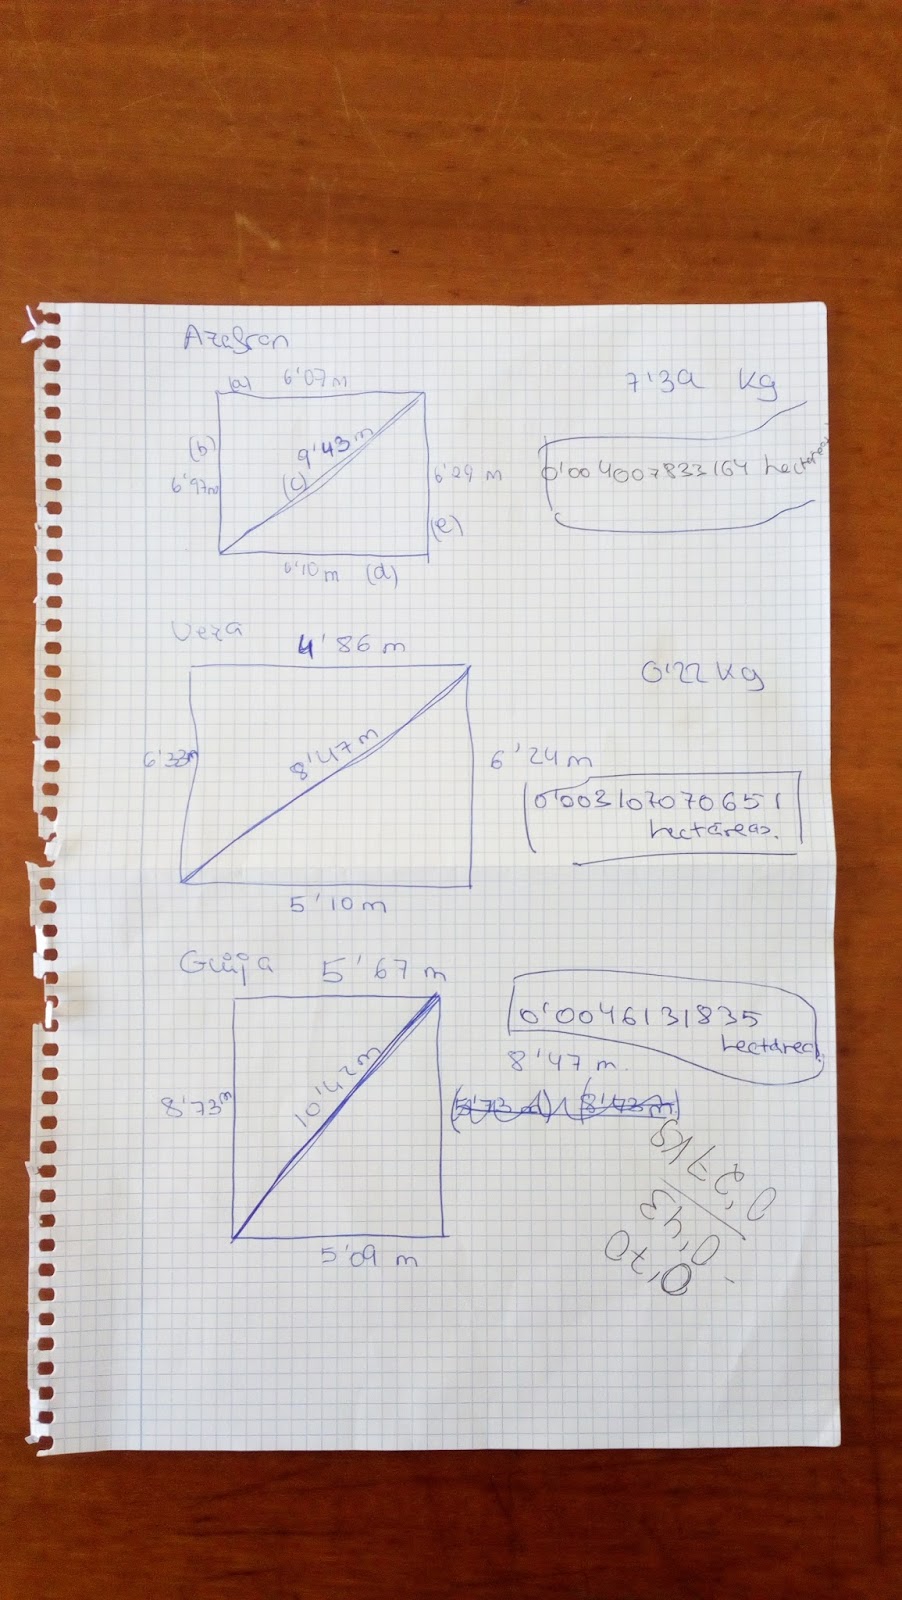 Azafran
(a) 6'07 m
7'39 Kg
(b)
9'43 m
6'97m
(c)
6'29 m
0'004007833164 hectáreas
(e)
6'10 m (d)
Veza
4'86 m
0'22 Kg
6'33m
8'47 m
6'24 m
0'003107070651
hectáreas.
5'10 m
Guija
5'67 m
0'0046131835
hectárea.
8'47 m.
8'73m
10'42m
5'09 m
0'27 Kg
0'43
0'70